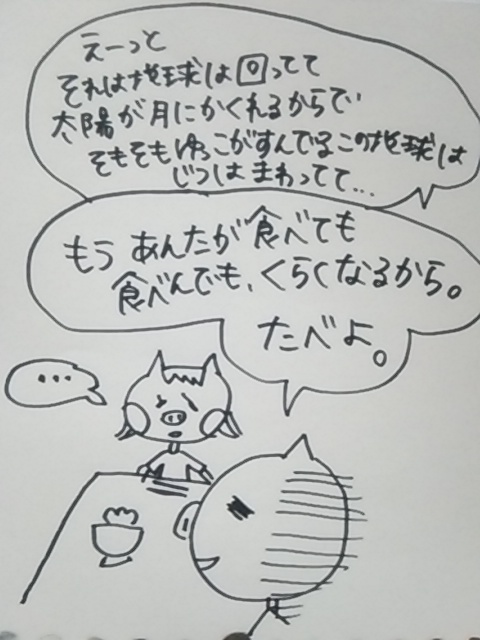 えーっと
それは地球は回ってて
太陽が月にかくれるからで
そもそもゆっこがすんでるこの地球は
じつはまわってて…
もうあんたが食べても
食べんでも、くらくなるから。
たべよ。
…